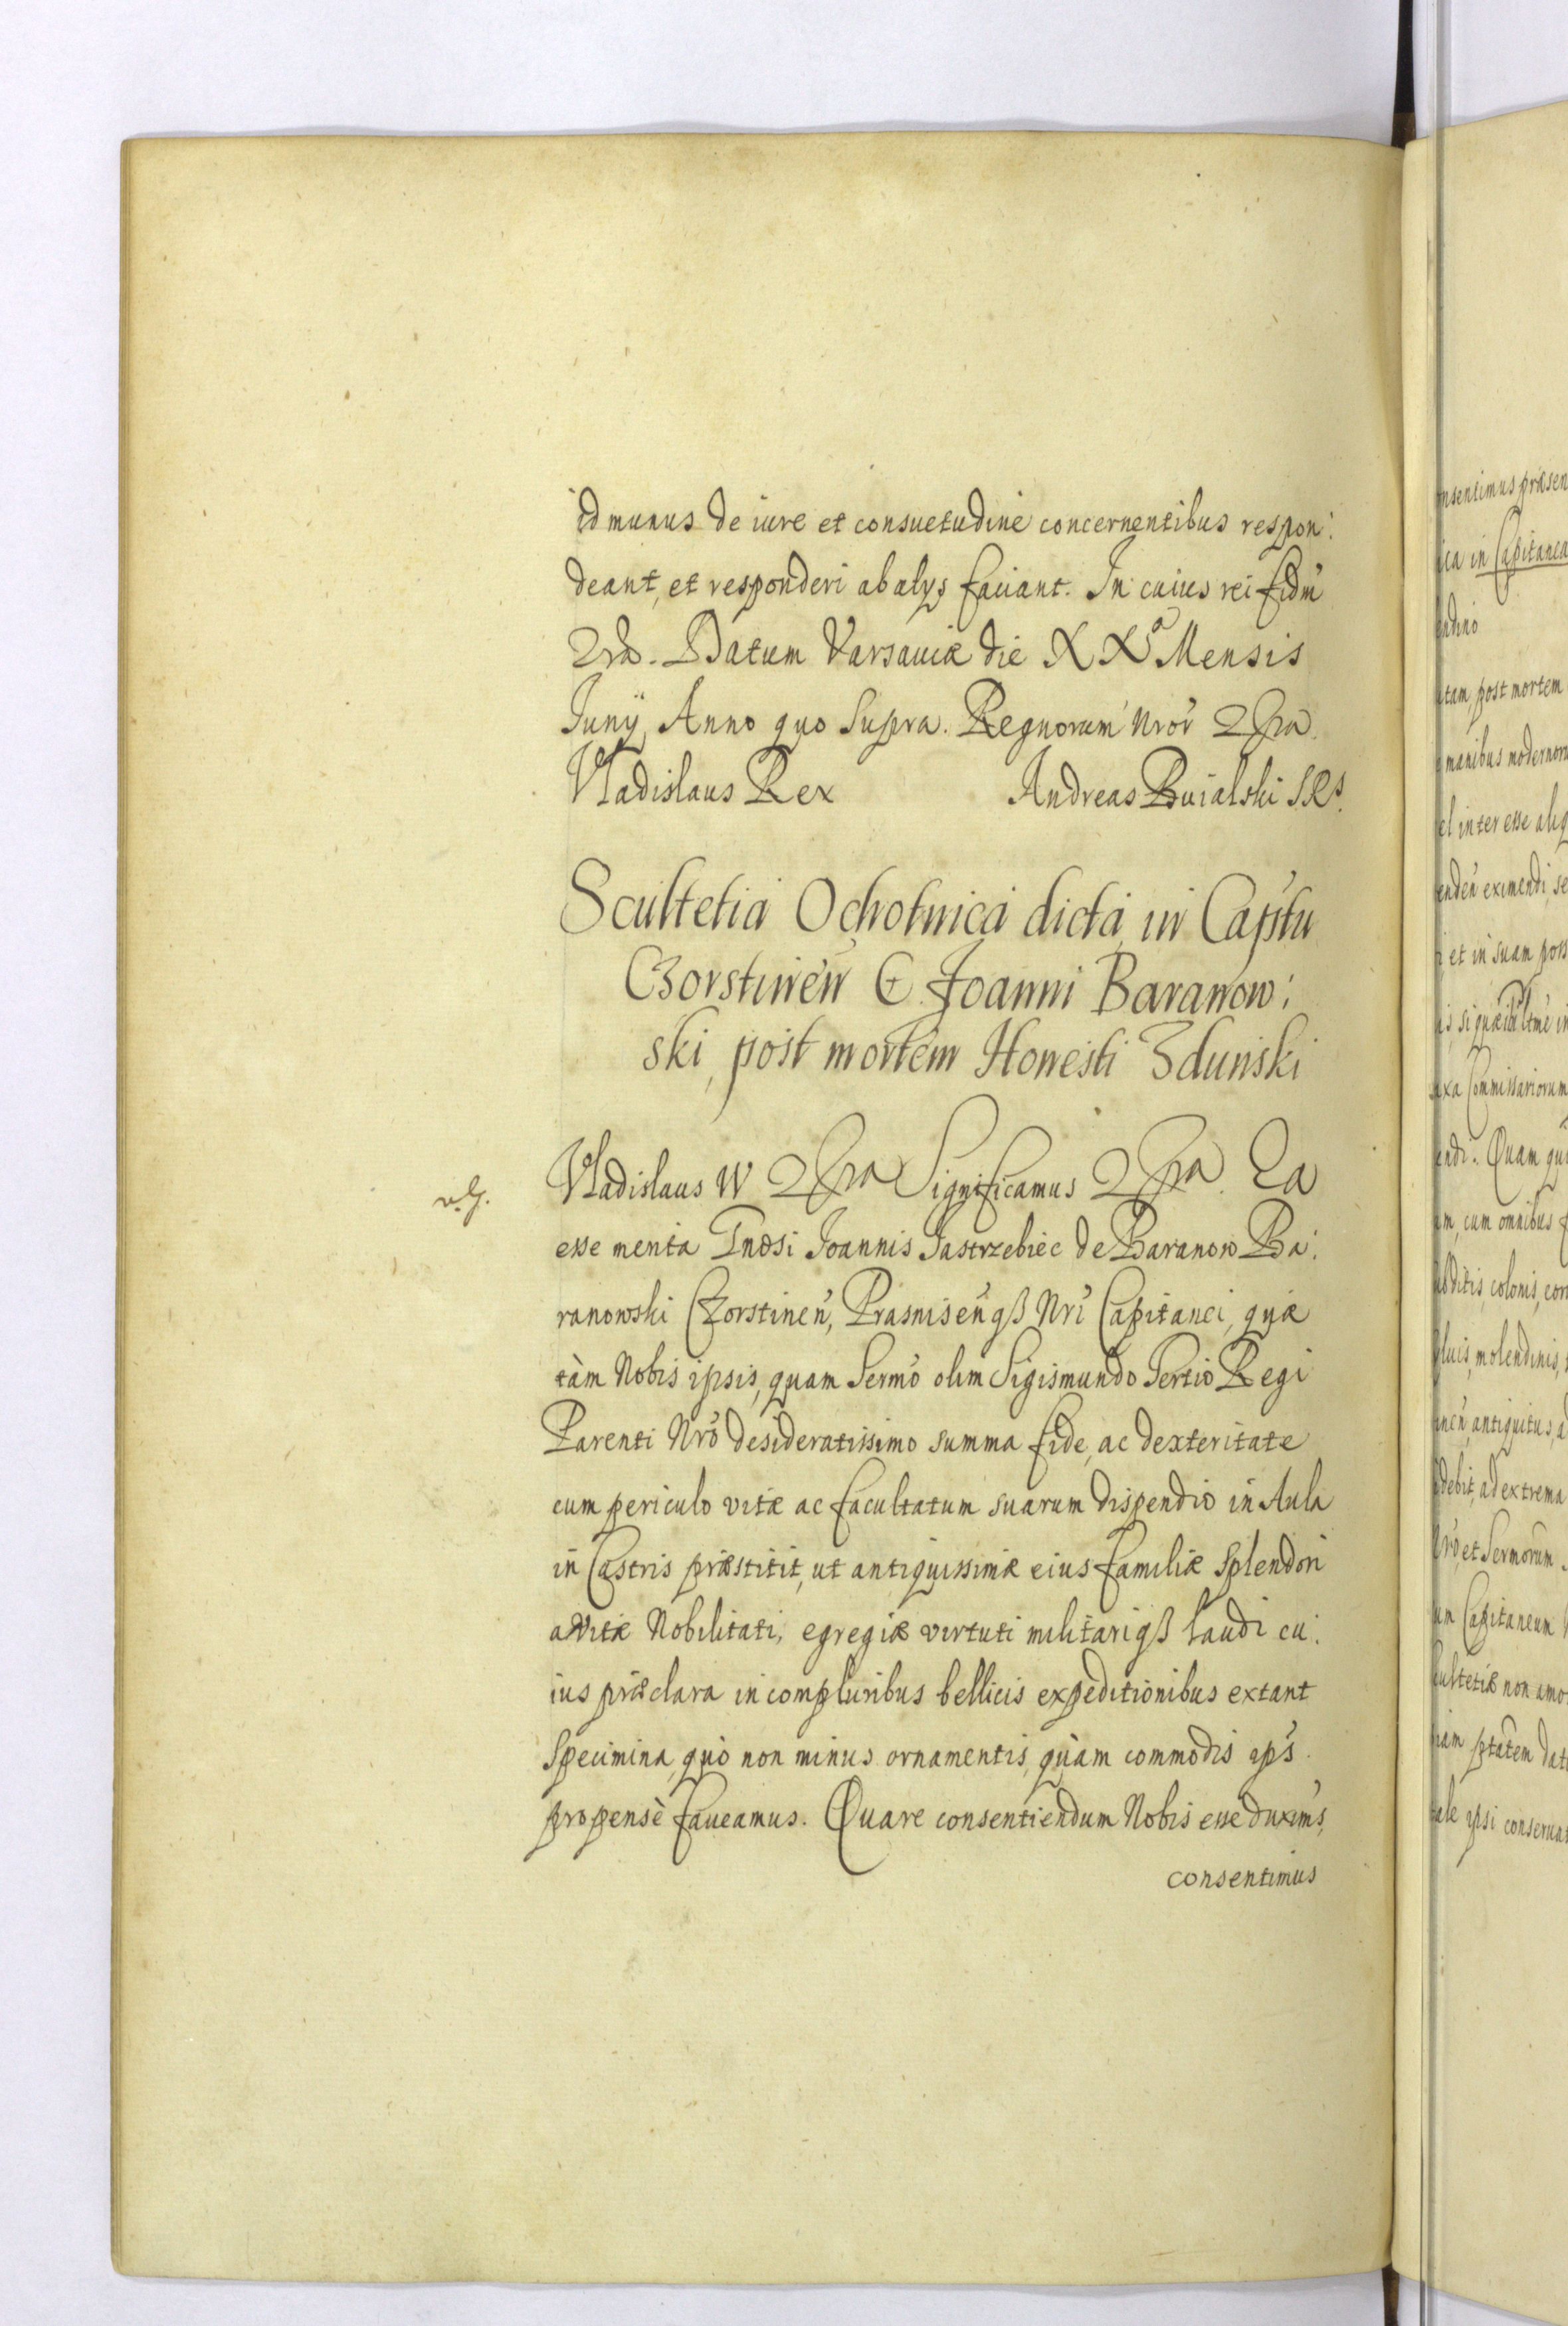 id munus de iure et consuetudine concernentibus respon:
deant, et responderi ab alys faciant. In cuius rei fidm̃
Datum Varsaviæ die XXa Mensis
Junÿ, Anno quo supra. Regnorum Nror̃ 2
Vladislaus Rex Andreas Buialski SRs.
Scultetia Ochotnica dicta, in Capĩtu
Czorstineñ G. Joanni Baranow:
ski, post mortem Honesti Zdunski
Vladislaus IV Significamus Ea
esse merita Gnõsi Joannis Jastrzebiec de Baranow Ba:
ranowski Czorstineñ, Prasniseñqß Nrĩ Capitanei, quæ
tàm Nobis ipsis, quam Sermõ olim Sigismundo Tertio Regi
Parenti Nrõ desideratissimo summa fide, ac dexteritate
cum periculo vitæ ac facultatum suarum dispendio in Aula
in Castris præstitit, ut antiquissimæ eius familiæ splendori
avitæ Nobilitati, egregiæ virtuti militariqß laudi cu:
ius præclara in compluribus bellicis expeditionibus extant
specimina, quò non minus ornamentis, quàm commodis ips̃
propensè faveamus. Quare consentiendum Nobis esse duxim̃s,
consentimus
onsentimus præsen
ica in Capitanea
ndino
tam, post mortem
manibus modernoru
el interesse aliq
endeñ eximendi, se
et in suam poss
Commissariorum
endi. Quam qui
m, cum omnibus
bditis, colonis, cor
luis, molendinis,
neñ antiquitus, a
debit, ad extrema
Nrõ, et Sermorum
um Capitaneum
ultetiæ non amo
iam ptãtem dat
ale ipsi conservat